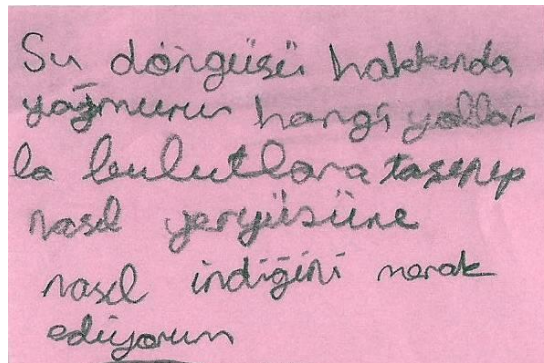 Su döngüsü hakkında
yağmurun hangi yollar-
la bulutlara taşınıp
nasıl yeryüsüne
nasıl indiğini merak
ediyorum